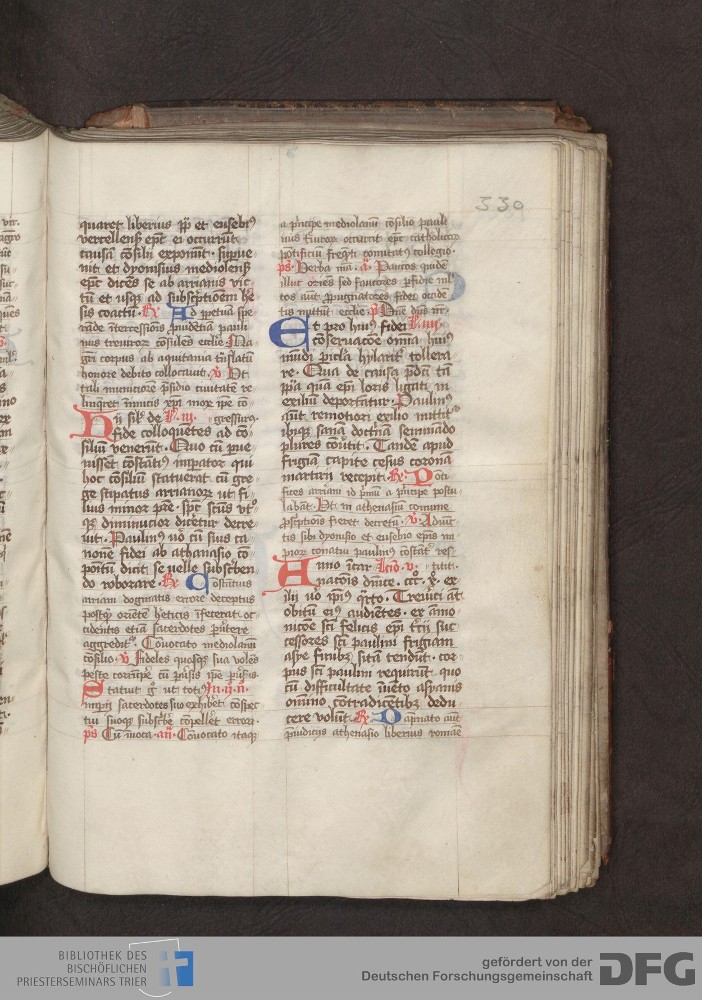 330
quaret liberius pp et eusebius
vercellensis epc ei occurrunt
causam consilii exponunt. superue
nit et dyonisius mediolensis
epc dicens se ab arrianis vic
tum et usque ad subscriptionem he
sis coactum. Rx Ad perpetuam spe
rande intercessionis prudentiam pauli
nus treuirorum consules ecclie Ma
gni corpus ab aquitania translatum
honore debito collocauit. v Ut
tali municiore presidio ciuitatem re
linqret inimicis xpi morx ipe co
Hii sil de L. iii. gressurus.
fide colloquetes ad co
silium venerunt. Quo cum pue
nisset constantius imperator qui
hoc consilium statuerat cum gre
ge stipatus arrianorum ut fi
lius minor patre. spc scus vtroque
diminucior diceretur decre
uit. Paulinus vero cum suis ca
nonem fidei ab athanasio co
positum dicit se uelle subscriben
do roborare. Rx Constantius
arriani dogmatis errore deceptus
postquam orientem hereticis infecerat oc
cidentis etiam sacerdotes peruertere
aggreditur. Conuocato mediolanum
consilio. v Fideles quosque sua voles
peste corrumpere cum
Statuit g ut totus In. ii. n.
imperii sacerdotes suo exhiberet conspec
tui suoque subscribere compelleret errori.
ps Cum inuoca. an. Conuocato itaque
a principe mediolanum consilio pauli
nus treuirorum occurrit epc catholicorum
pontificum frequenti comitatus collegio.
ps. Verba mea. a. Paucos quidem
illuc oriens sed fautores perfidie mul
tos aut propugnatores fidei occiden
tis mittit ecclie. p Dne dus nr.
Et pro huius fidei L. iiii.
conseruacione omnia huius
mundi pericla hylariter tollera
re. Qua de causa pdcm tum
pria quam epi loris ligati in
exilium deportatur. Paulinus
aut remotiori exilio mittitur
ibique sanam doctrinam seminando
plures conuertit. Tandem apud
frigiam capite cesus coronam
martirii recepit. Rx Ponti
fices arriani id primum a principe postu
labant. Ut in athenasium commune
proscriptionis fieret decretum. v Aduen
tis sibi dyonisio et eusebio epis im
piorum conatui paulinus constanter res
Anno incar Lcio. v. titit.
nacois dnice. ccc. x. ex
ilii vo ipius qrto. Treuirci aut
obitum eius audientes. ex ammo
nicione sci felicis epi trerii suc
cessores sci paulini frigiam
asie finibus sitam tendunt. cor
pus sci paulini requirunt quo
cum difficultate inuento asianis
omnino contradicentibus dedu
cere volunt. Rx Dapnato aut
preiudiciis athenasio liberius romane
BIBLIOTHEK DES
BISCHÖFLICHEN
PRIESTERSEMINARS TRIER
gefördert von der
Deutschen Forschungsgemeinschaft
DFG